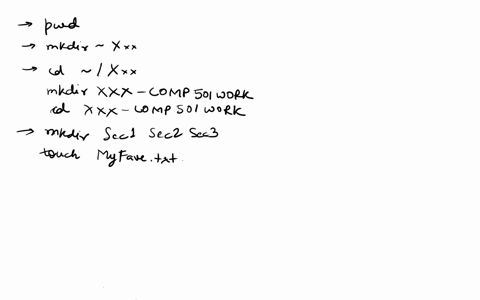 → pwd
→ mkdir ~ Xxx
→ cd ~/Xxx
mkdir XXX-COMP501WORK
cd XXX-COMP501WORK
→ mkdir Sec1 Sec2 Sec3
touch MyFave.txt